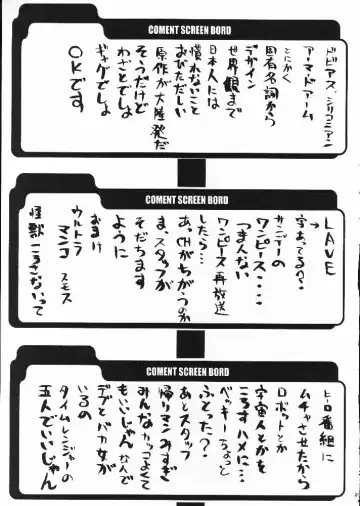 COMENT SCREEN BORD
トビアス・シリコニアン
アーマードアーム
とにかく
固有名詞から
デザイン
世界観まで
日本人には
慣れないこと
おびただしい
原作が大陸発だ
そうだけど
わざとでしょ
ギャグでしょ
OKです
COMENT SCREEN BORD
LAVE
→字あってるの?
サンデーの
つまんない
ワンピース・・・・
ワンピース再放送
したら…
あっCHがちがうのか
ま、スタッフが
そだちます
ように
おまけ
ウルトラ
マンコスモス
怪獣ころさないって
COMENT SCREEN BORD
ヒーロー番組に
ムチャさせたから
ロボットとか
宇宙人とかを
ころすハメに…
ベッキーちょっと
ふとった?
あとスタッフ
帰りマンみすぎ
みんなカッコよくて
もいいじゃんなんで
デブとバカ女が
いるの
タイムレンジャーの
五人でいいじゃん